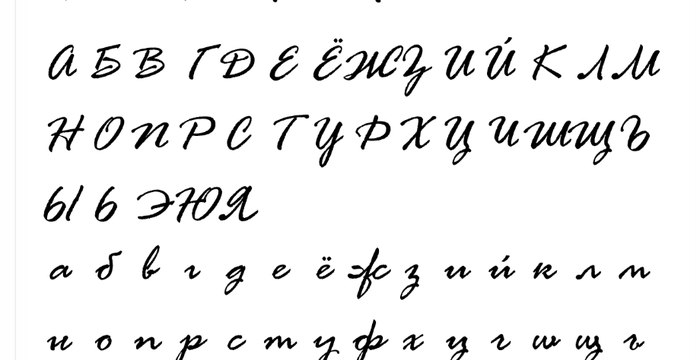 А Б В Г Д Е Ё Ж З И Й К Л М
Н О П Р С Т У Ф Х Ц Ч Ш Щ Ъ
Ы Ь Э Ю Я
а б в г д е ё ж з и й к л м
н о п р с т у ф х ц ч ш щ ъ